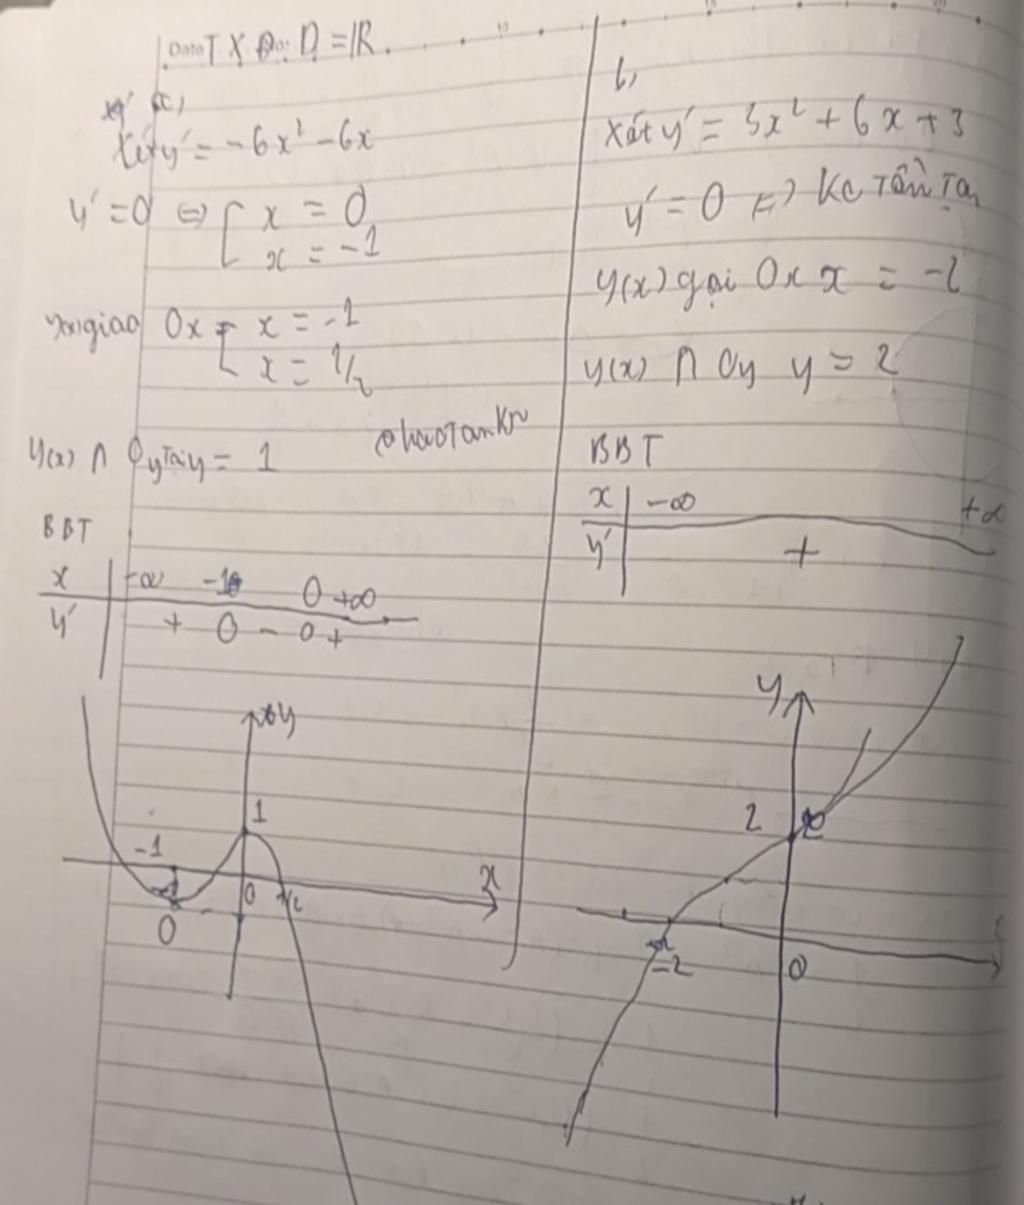 Date T X Đ: D = ℝ.
a)
Xét y' = -6x² - 6x
y' = 0 ⇔ [ x = 0
x = -1
y(x) giao Ox [ x = -1
x = 1/2
y(x) ∩ Oy Tại y = 1
BBT
x -∞ -1 0 +∞
y' + 0 - 0 +
y
1
-1
0 1/2 x
0
b,
Xát y' = 3x² + 6x + 3
y' = 0 ⇔ Ko Tồn Tại
y(x) gọi Ox x = -2
y(x) ∩ Oy y = 2
BBT
x -∞ +∞
y' +
y
2
-2
0